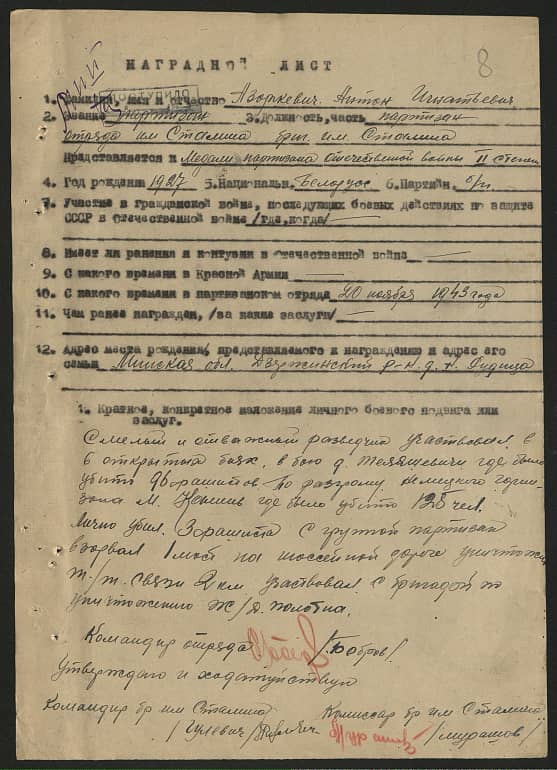 8
ПОСТУПИЛО
НАГРАДНОЙ ЛИСТ
1. Фамилия, имя и отчество Азоркевич Антон Игнатьевич
2. Звание партизан 3. Должность, часть партизан
отряда им Сталина бриг. им. Сталина
Представляется к Медали партизана отечественной войны II степени
4. Год рождения 1927 5. Национальн. Белорус 6. Партийн. б/п.
7. Участие в гражданской войне, последующих боевых действиях по защите
СССР в Отечественной войне /где, когда/ —
8. Имеет ли ранения и контузии в Отечественной войне —
9. С какого времени в Красной Армии —
10. С какого времени в партизанском отряде 20 ноября 1943 года
11. Чем ранее награжден, /за какие заслуги/ —
12. Адрес места рождения, представляемого к награждению и адрес его
семьи Минская обл. Дзержинский р-н. д. Н. Рудица
1. Краткое, конкретное изложение личного боевого подвига или
заслуг.
Смелый и отважный разведчик участвовал в
6 открытых боях, в бою д. где было
убито По разгрому немецкого гарни-
зона М. где было убито 128 чел.
Лично убил 3 фашиста с группой партизан
взорвал 1 мост на шоссейной дороге уничтожил
т./т. связи 2 км участвовал с бригадой по
уничтожению ж/д. полотна.
Командир отряда /Бобров/
Утверждаю и ходатайствую
Командир бр им Сталина Комиссар бр им Сталина
/Гулевич/ /Мурашов/